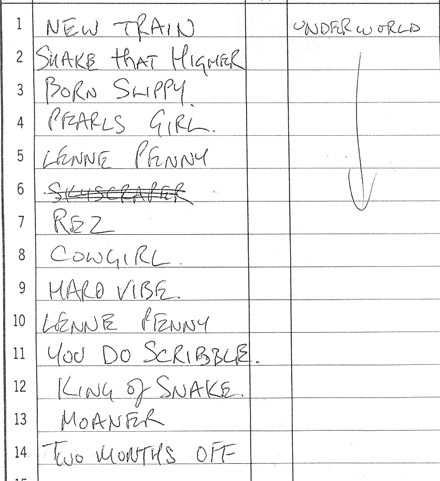 1 NEW TRAIN UNDERWORLD
2 SNAKE that HIGHER
3 BORN SLIPPY.
4 PEARLS GIRL.
5 LENNE PENNY
6 SKYSCRAPER
7 REZ
8 COWGIRL.
9 HARD VIBE.
10 LENNE PENNY
11 YOU DO SCRIBBLE.
12 KING of SNAKE.
13 MOANER
14 TWO MONTHS OFF